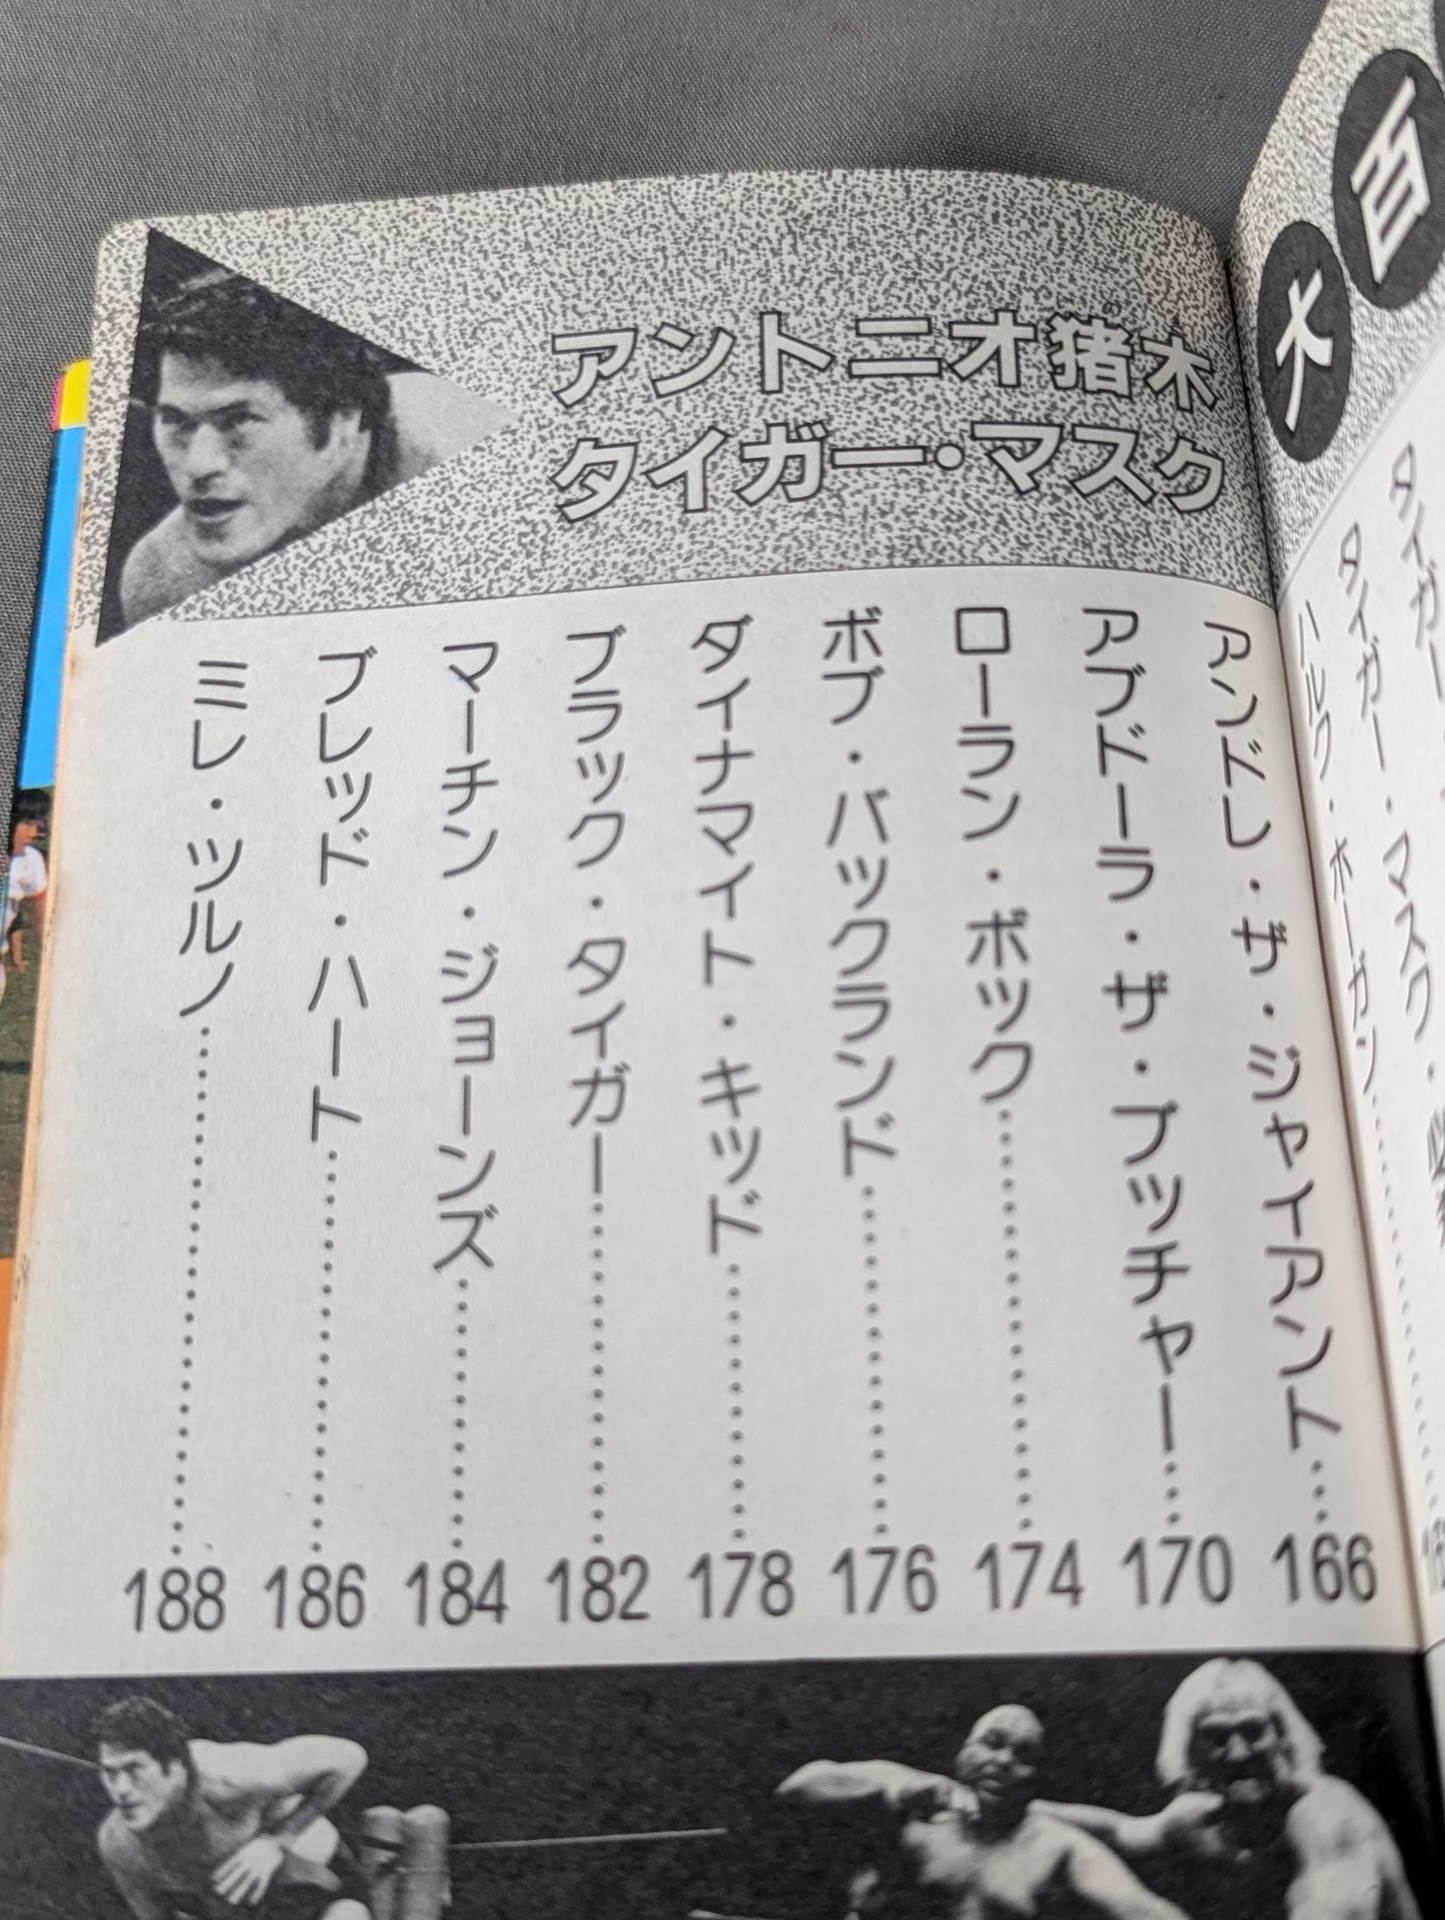 大百
アントニオ猪木
タイガー・マスク
ハルク・ホーガン
アンドレ・ザ・ジャイアント……166
アブドーラ・ザ・ブッチャー……170
ローラン・ボック……174
ボブ・バックランド……176
ダイナマイト・キッド……178
ブラック・タイガー……182
マーチン・ジョーンズ……184
ブレッド・ハート……186
ミレ・ツルノ……188